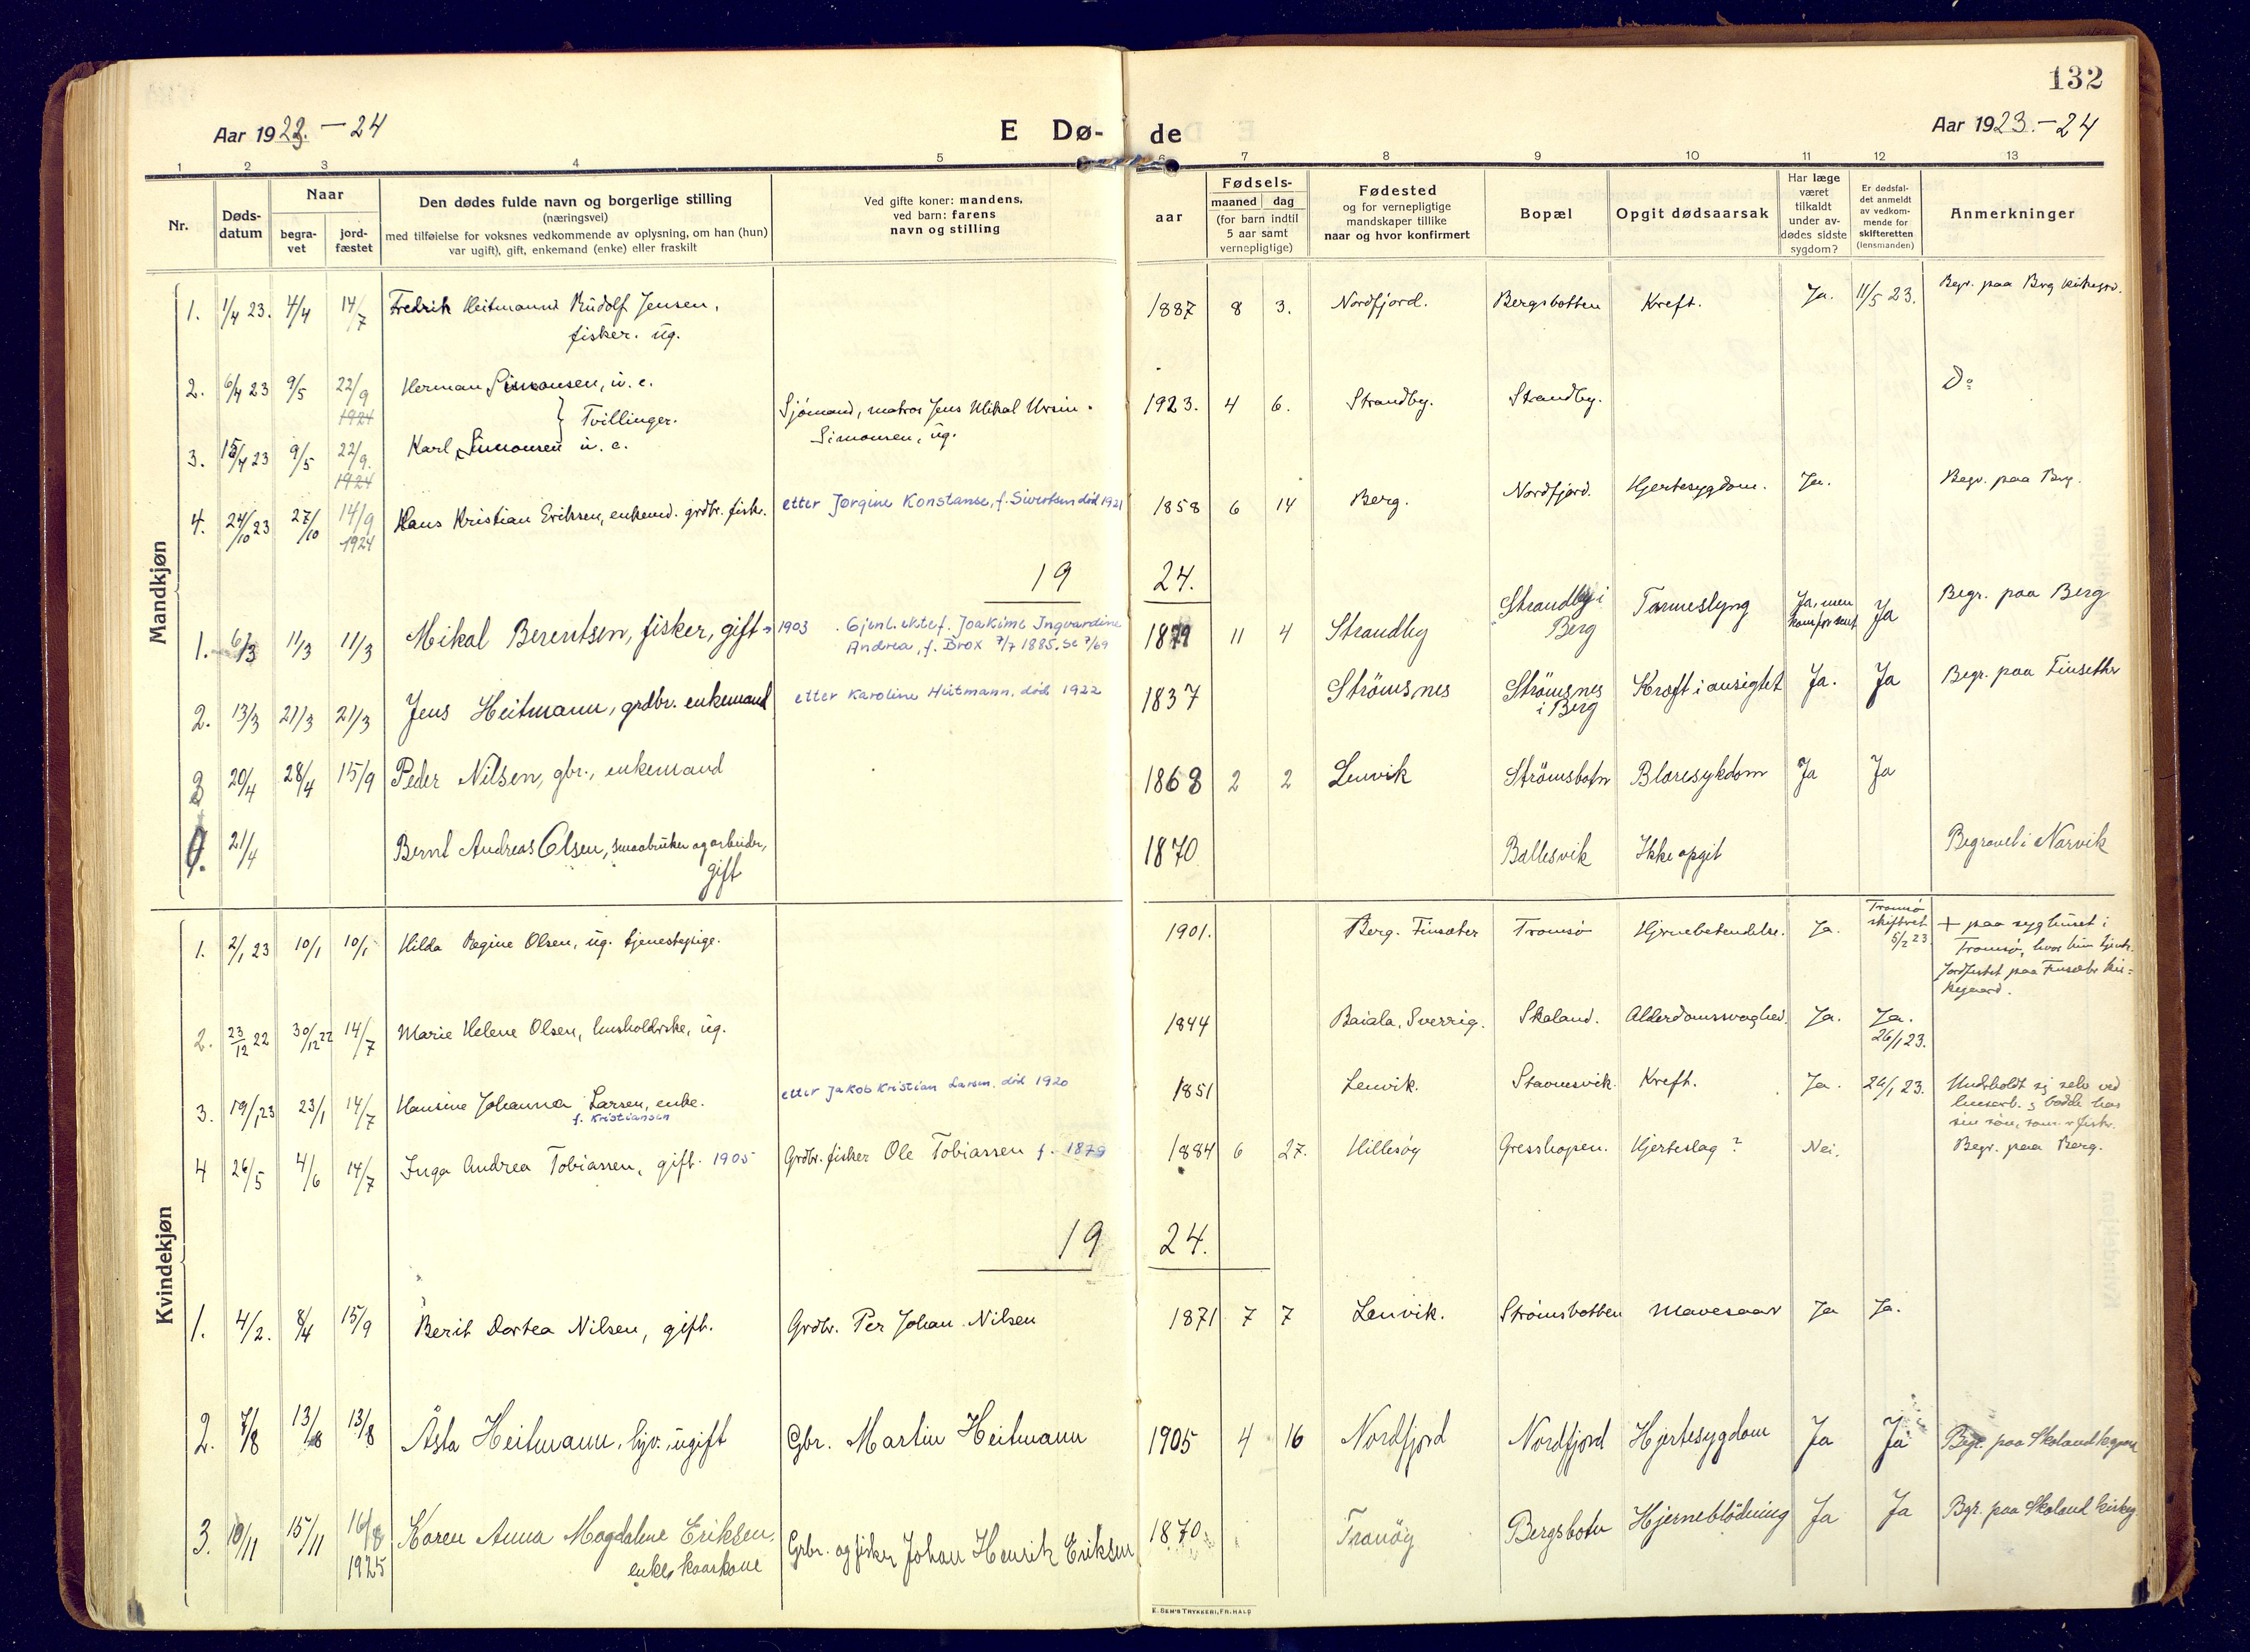 132
Aar 1923. – 24
E Dø- de
Aar 1923. – 24
1 2 3 4 5 6 7 8 9 10 11 12 13
Nr.
Døds-
datum
Naar
begra-
vet
jord-
fæstet
Den dødes fulde navn og borgerlige stilling
(næringsvei)
med tilføielse for voksnes vedkommende av oplysning, om han (hun)
var ugift), gift, enkemand (enke) eller fraskilt
Ved gifte koner: mandens,
ved barn: farens
navn og stilling
Fødsels-
aar
maaned dag
(for barn indtil
5 aar samt
vernepligtige)
Fødested
og for vernepligtige
mandskaper tillike
naar og hvor konfirmert
Bopæl
Opgit dødsaarsak
Har læge
været
tilkaldt
under av-
dødes sidste
sygdom?
Er dødsfal-
det anmeldt
av vedkom-
mende for
skifteretten
(lensmanden)
Anmerkninger
Mandkjøn
1. 1/4 23. 4/4 14/7 Fredrik Heitmann Rudolf Jensen, 1887 8 3. Nordfjord. Bergsbotten Kreft. Ja. 11/5 23. Begr. paa Brg
fisker. ug.
2. 6/4 23 9/5 22/9 Herman Simonsen, u. e. 1923. 4 6. Strandby. Strandby. Do
1924
} Tvillinger. Sjömand, matros Jens Mikal Ursin
Simonsen, ug.
3. 15/4 23 9/5 22/9. Karl Simonsen u. e.
1924
4. 24/10 23 27/10 14/9 Hans Kristian Eriksen, enkemd. grdbr. fisk. etter Jørgine Konstanse, f. Sivertsen død 1921 1858 6 14 Berg. Nordfjord. Hjertesygdom. Ja. Begr. paa Brg.
1924
19 24.
1. 6/3 11/3 11/3 Mikal Berentsen, fisker, gift 1903 Gjenl. ektef. Joakime Ingvardine 1879 11 4 Strandby Strandby i Tarmeslyng Ja, men Ja Begr. paa Berg
Andrea, f. Brox 7/7 1885. Berg kom for sent
2. 13/3 21/3 21/3 Jens Heitmann, grdbr. enkemand etter Karoline Heitmann, død 1922 1837 Strömsnes Strömsnes Kræft i ansigtet Ja. Ja Begr. paa Finsethr
i Berg
3 20/4 28/4 15/9 Peder Nilsen, gbr., enkemand 1868 2 2 Lenvik Strömsbotn Blæresykdom Ja Ja
0. 21/4 Bernt Andreas Olsen, smaabruker og arbeider, 1870 Ballesvik Ikke opgit Begravet i Narvik
gift
Kvindekjøn
1. 2/1 23 10/1 10/1 Hilda Regine Olsen, ug. tjenestepige. 1901. Berg. Finsæter Tromsø Hjernebetendelse. Ja. Tromsø
skifteret
5/2 23
+ paa syghuset i
Tromsø, hvor hun tjente.
Jordfestet paa Finsæter kir=
kegaard.
2. 23/12 22 30/12 22 14/7 Marie Helene Olsen, husholderske, ug. 1844 Baiala, Sverrig. Skaland. Alderdomssvaghed. Ja. Ja.
26/1 23.
3. 19/1 23 23/1 14/7 Hansine Johanna Larsen, enke. etter Jakob Kristian Larsen, død 1920 1851 Lenvik. Stavnesvik. Kreft. Ja. 24/1 23. Underholdt sig selv ved
f. Kristiansen husarb. bodde hos
sin søn, som
4 26/5 4/6 14/7 Inga Andrea Tobiassen, gift. 1905 Grdbr. fisker Ole Tobiassen f. 1879 1884 6 27. Hillesøy Gresshopen. Hjerteslag? Nei. Begr. paa Berg.
19 24.
1. 4/2. 8/4 15/9 Berit Dortea Nilsen, gift. Grdbr. Per Johan Nilsen 1871 7 7 Lenvik. Strömsbotten Mavesaar Ja Ja.
2. 7/8 13/8 13/8 Åsta Heitmann, hjv. ugift Gbr. Martin Heitmann 1905 4 16 Nordfjord Nordfjord Hjertesygdom Ja Ja Begr. paa Skaland
3. 10/11 15/11 16/8 Karen Anna Magdalene Eriksen, Grbr. og fisker Johan Henrik Eriksen 1870. Tranöy Bergsbotn Hjerneblödning Ja Ja Bgr. paa Skaland kirkeg.
1925 enke, kaarkone
E. SEM'S TRYKKERI, FR.HALD